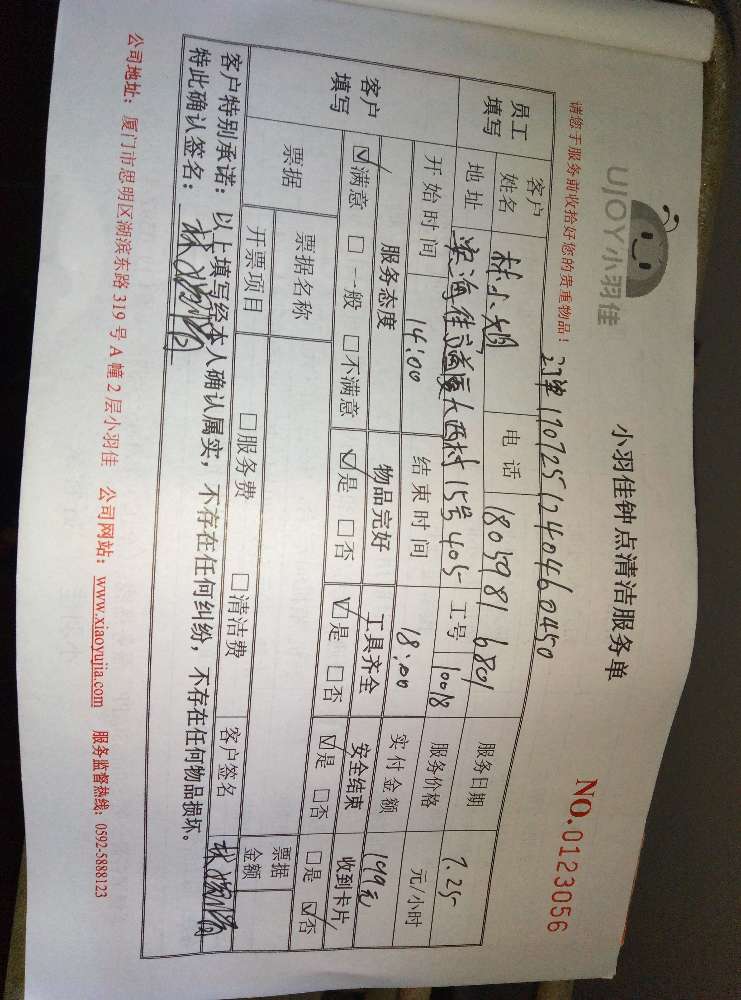 UJOY小羽佳
小羽佳钟点清洁服务单
NO.0123056
请您于服务前收拾好您的贵重物品！
订单1707251240460450
员工填写
客户姓名 林小 电话 18059816801 服务日期 7.25
地址 15号405 工号 10018 服务价格 元/小时
客户填写
开始时间 14:00 结束时间 18:00 实付金额 199元
服务态度 物品完好 工具齐全 安全结束 收到卡片
☑满意 □一般 □不满意 ☑是 □否 ☑是 □否 ☑是 □否 □是 ☑否
票据 票据名称 票据金额
开票项目 □服务费 □清洁费 客户签名
客户特别承诺：以上填写经本人确认属实，不存在任何纠纷，不存在任何物品损坏。
特此确认签名：
公司地址：厦门市思明区湖滨东路319号A幢2层小羽佳 公司网站：www.xiaoyujia.com 服务监督热线：0592-5888123